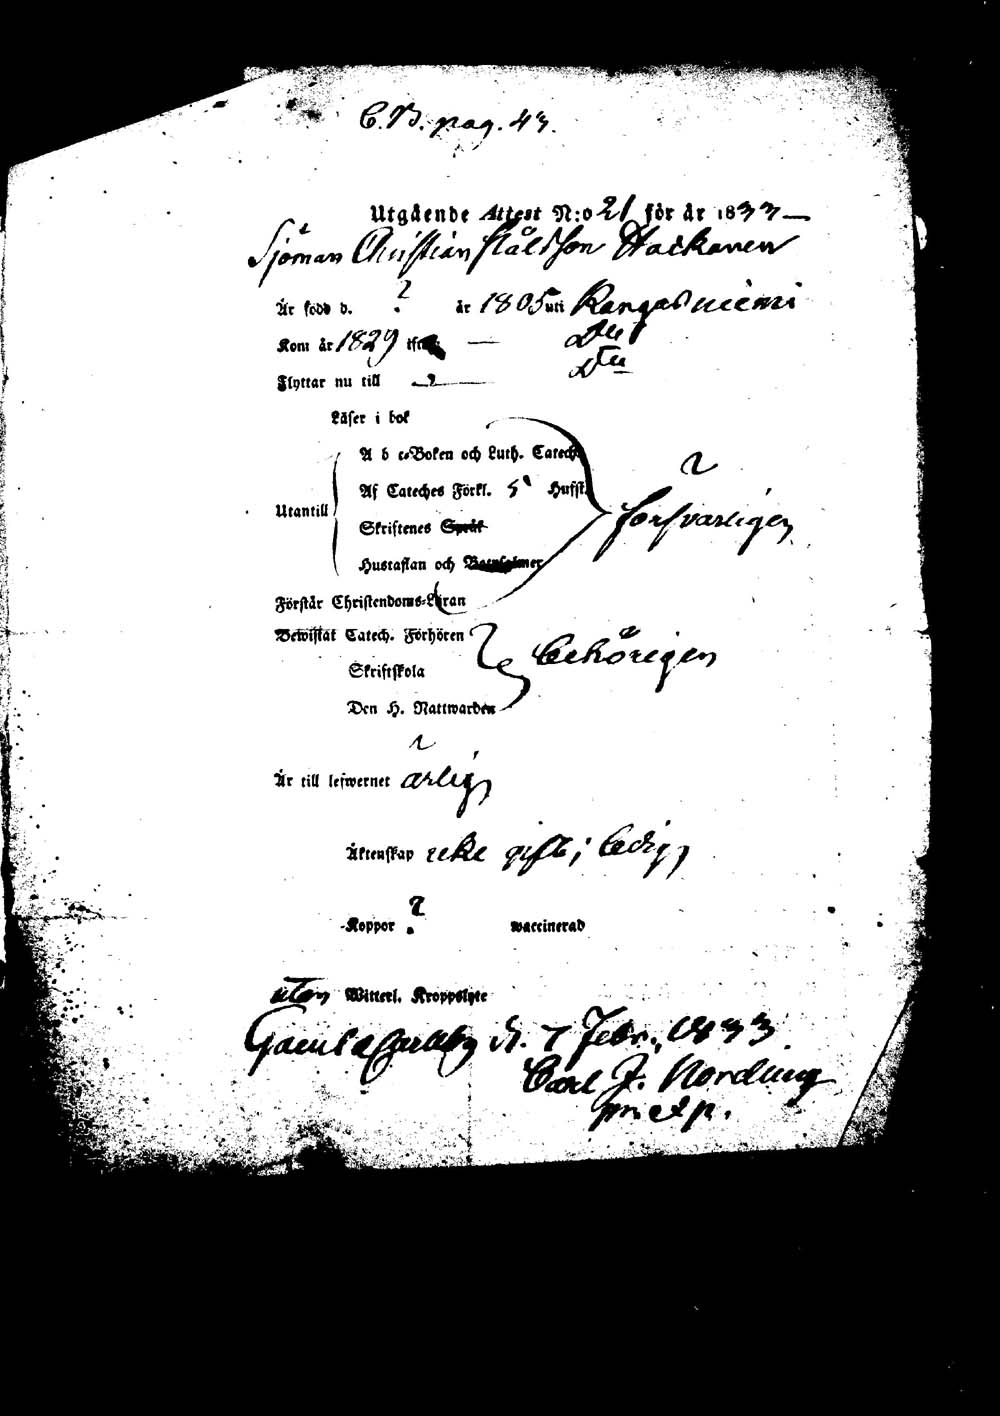 C.B. pag. 43.
Utgående Attest N:o 21 för år 1833
Sjöman Christian Stålsson Hackanen
Är född d. ? år 1805 uti Kangasniemi
Kom år 1829 ifrån — Do
Flyttar nu till —
Läser i bok
A b c-Boken och Luth. Catech.
Af Cateches Förkl. 5 Hufst.
Utantill försvarligen
Skriftenes Språk
Hustaflan och
Förstår Christendoms-Läran
Bewistat Catech. Förhören
behörigen
Skriftskola
Den H. Nattwarden
Är till lefwernet ärlig
Äktenskap icke gift; ledig
Koppor ? waccinerad
utan Witterl. Kroppslyte
Gamla Carleby d. 7 Febr. 1833.
Carl J. Nordlung